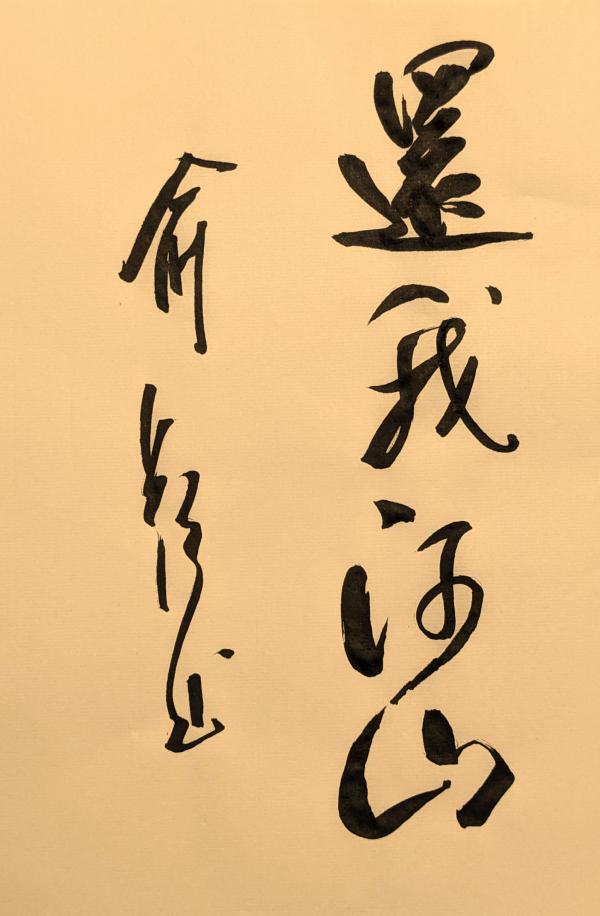 還我河山
俞